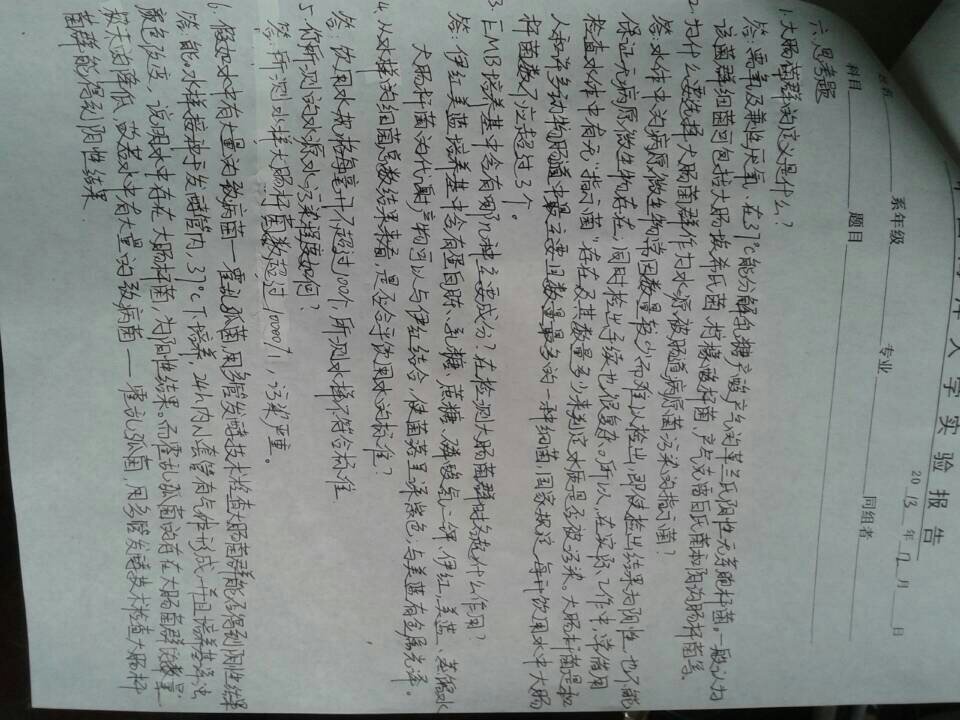 大学实验报告
2013年12月 日
系年级 专业 同组者
科目 题目
六.思考题
1.大肠菌群的定义是什么?
答:需氧及兼性厌氧、在37℃能分解乳糖产酸产气的革兰氏阴性无芽胞杆菌。一般认为
该菌群细菌可包括大肠埃希氏菌、柠檬酸杆菌、产气克雷伯氏菌和阴沟肠杆菌等。
2.为什么要选择大肠菌群作为水源被肠道病原菌污染的指示菌?
答:水体中的病原微生物常因数量较少而难以检出,即使检出结果为阴性,也不能
保证无病原微生物存在,同时检出手续也很复杂。所以,在实际工作中,常借用
检查水体中有无"指示菌"存在及其数量多少来判定水质是否被污染。大肠杆菌是和
人和许多动物肠道中最主要且数量最多的一种细菌,国家规定,每升饮用水中大肠
杆菌数不应超过3个。
3.EMB培养基中含有哪几种主要成分?在检测大肠菌群时,各起什么作用?
答:伊红美蓝培养基中含有蛋白胨、乳糖、蔗糖、磷酸氢二钾、伊红、美蓝、蒸馏水
大肠杆菌的代谢产物可以与伊红结合,使菌落呈深紫色,与美蓝有金属光泽。
4.从水样的细菌总数结果来看,是否合乎饮用水的标准?
答:饮用水规格每毫升不超过100个,所测水样不符合标准
5.你所测的水源水污染程度如何?
答:所测水样大肠杆菌数超过10000个/l,污染严重。
6.假如水中有大量的致病菌—霍乱弧菌,用多管发酵技术检查大肠菌群,能否得到阴性结果
答:能。水样接种于发酵管内,37℃下培养,24h内小套管有气体形成,并且培养基浑浊,
颜色改变,说明水中存在大肠杆菌,为阳性结果。而霍乱弧菌的存在大肠菌群的数量
较未的降低,故若水中有大量的致病菌——霍乱弧菌,用多管发酵技术检查大肠杆
菌群能得到阴性结果.